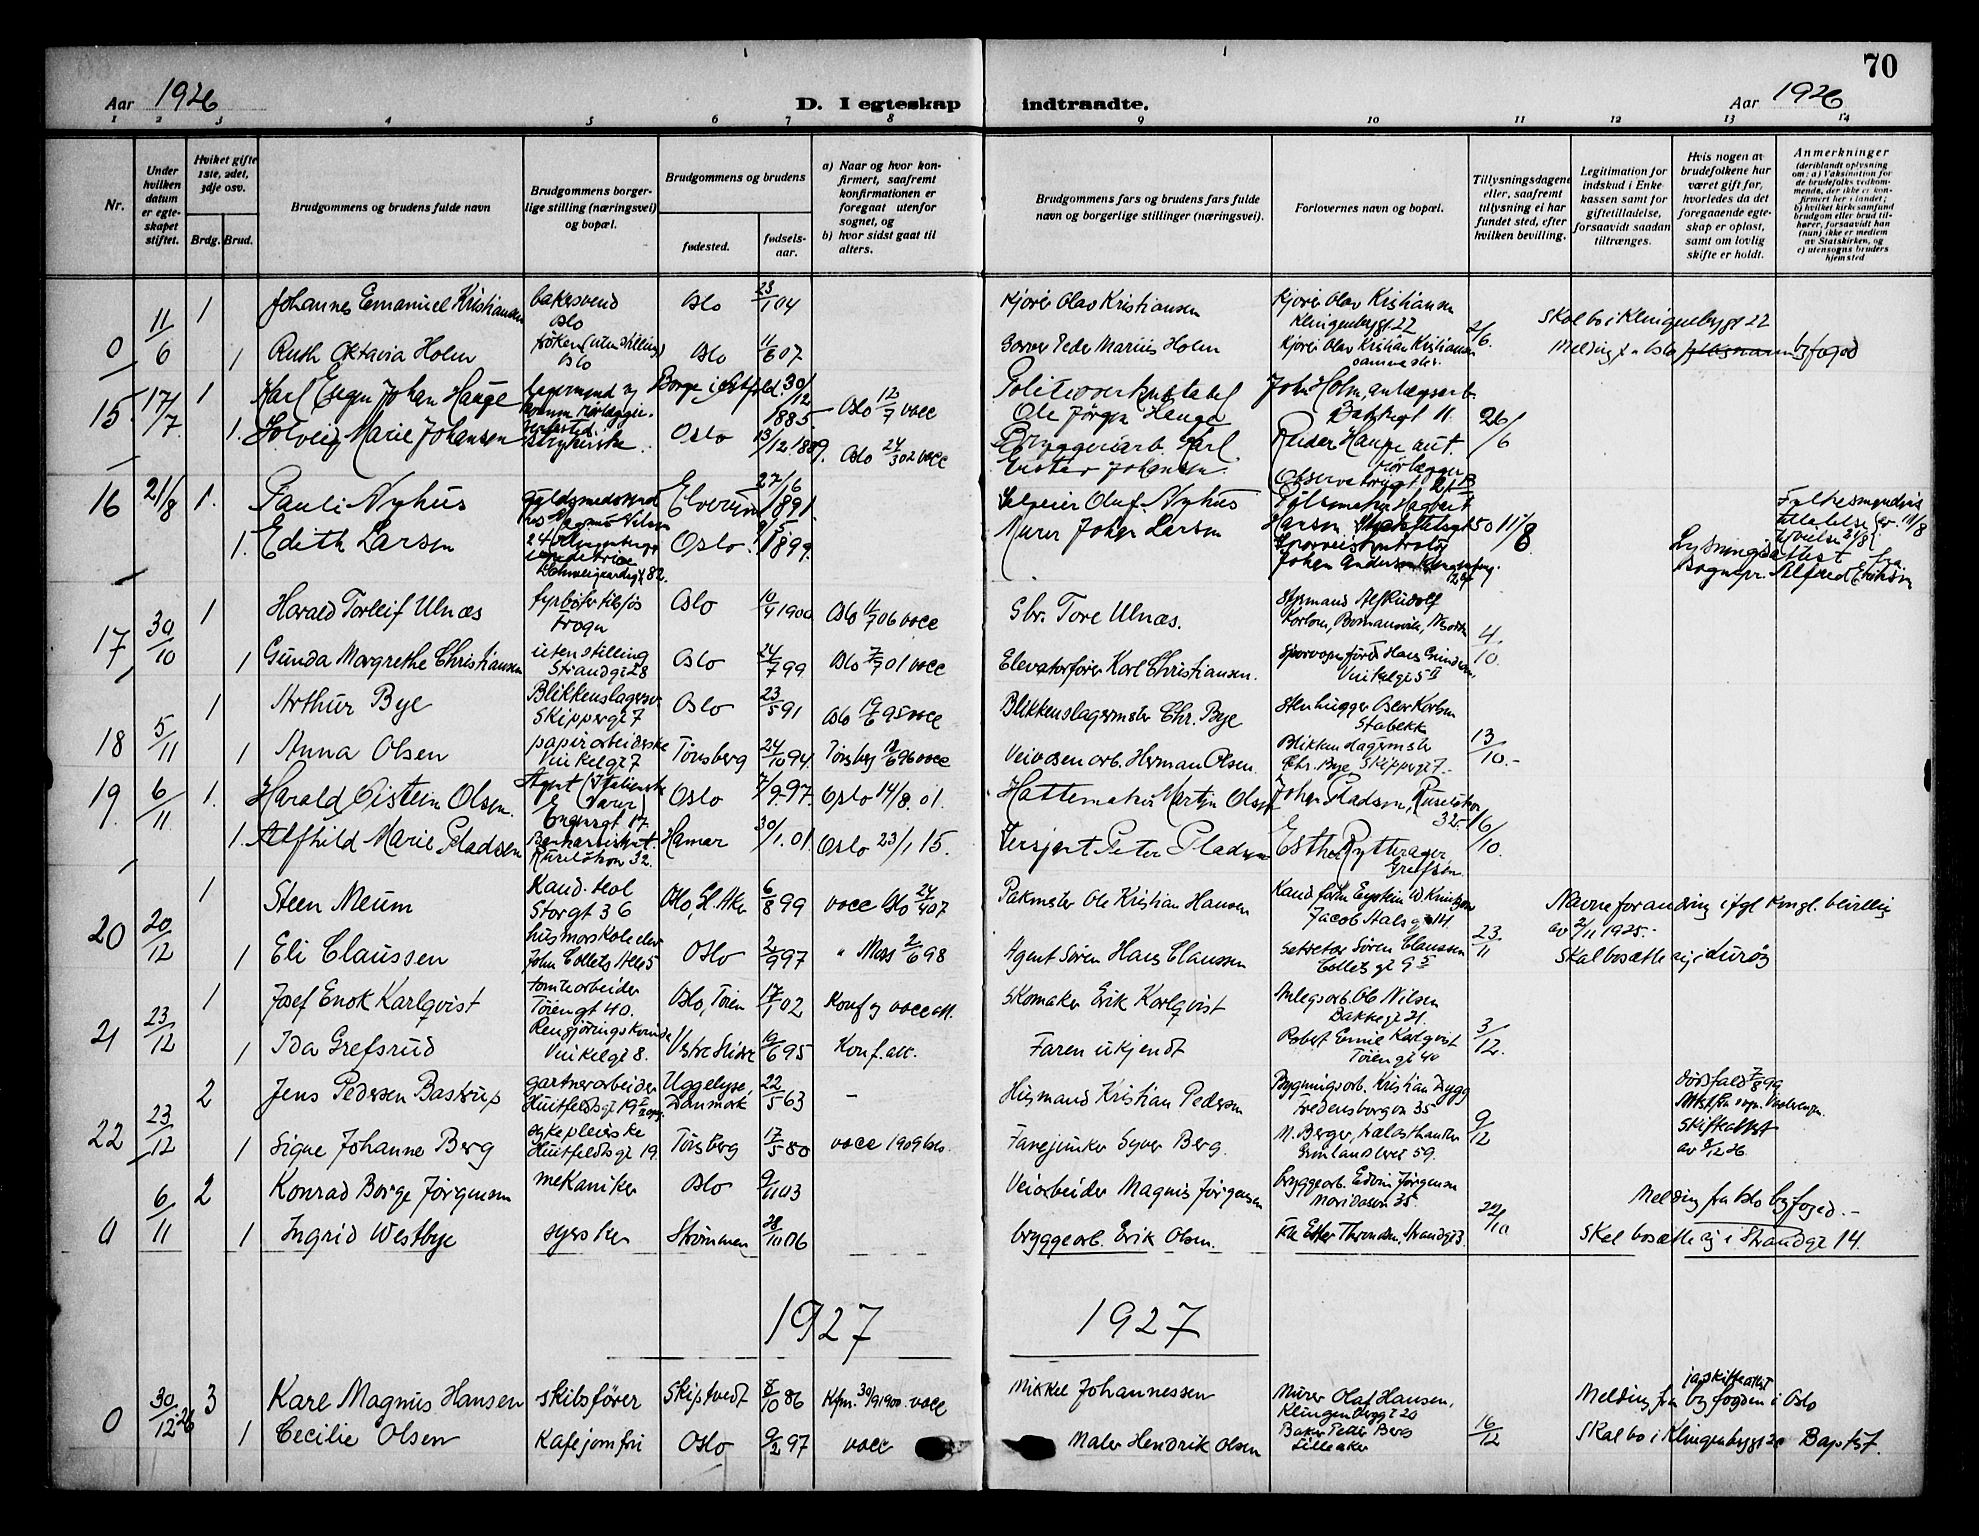 70
Aar 1926
D. I egteskap indtraadte.
Aar 1926
1 2 3 4 5 6 7 8 9 10 11 12 13 14
Nr.
Under hvilken datum er egteskapet stiftet.
Hvilket gifte 1ste, 2det, 3dje osv.
Brdg. Brud.
Brudgommens og brudens fulde navn
Brudgommens borgerlige stilling (næringsvei) og bopæl.
Brudgommens og brudens
fødested.
fødselsaar.
a) Naar og hvor konfirmert, saafremt konfirmationen er foregaat utenfor sognet, og
b) hvor sidst gaat til alters.
Brudgommens fars og brudens fars fulde navn og borgerlige stillinger (næringsvei).
Forlovernes navn og bopæl.
Tillysningsdagene eller, saafremt tillysning ei har fundet sted, efter hvilken bevilling.
Legitimation for indskud i Enkekassen samt for giftetilladelse, forsaavidt saadan tiltrænges.
Hvis nogen av brudefolkene har været gift før, hvorledes da det foregaaende egteskap er opløst, samt om lovlig skifte er holdt.
Anmerkninger
(deriblandt oplysning om: a) Vaksination for de brudefolks vedkommende, der ikke er konfirmert her i landet; b) hvilket kirkesamfund brudgom eller brud tilhører, forsaavidt han (hun) ikke er medlem av Statskirken, og c) utensogns bruders hjemsted
0 11/6 1 Johannes Emanuel Kristiansen bakersvend Oslo Oslo 23/1 04 Kjører Olav Kristiansen Kjører Olav Kristiansen Klingenbergt 22 2/6 Skal bo i Klingenbergt 22
1 Ruth Oktavia Holm frøken (uten stilling) Oslo Oslo 11/6 07 Peder Marius Holm Kjører Olav Kristian Kristiansen samme sted. Melding fra Oslo byfoged
15. 17/7 1 Karl Jørgen Johan Hauge 30/12 1885 Oslo 12/7 vacc Politioverkonstabel Ole Jørgen Hauge John Holm, anlægsarb. Bakkegt 11. 26/6
1. Solveig Marie Johansen Strykerske Oslo 13/12 1889. Oslo 24/3 02 vacc Bryggeriarb. Karl Johansen. Reidar Hauge aut. rørlægger
16 21/8 1. Pauli Nyhus Guldsmedsvend Elverum 27/6 1891. Oluf Nyhus Hansen 11/8 tilladelse 11/8
1. Edith Larsen Schweigaardsgt. 82. Oslo. 9/5 1899. Murer Johan Larsen Johan Andersen Lysningsattest fra Sognepr. Alfred Eriksen
17 30/10 1 Harald Torleif Ulnæs fyrbøter Oslo 10/4 1900 Oslo 11/7 06 vacc Tore Ulnæs. Styrmand Alf Rudolf 4/10.
1 Gunda Margrethe Christiansen uten stilling Strandgt 28 Oslo 24/7 99 Oslo 7/7 01 vacc Elevatorfører Karl Christiansen. Sporvognsfører Hans Vinkelgt 5 II
18 5/11 1 Arthur Bye Blikkenslagersv Skippergt 7 Oslo 23/5 91 Oslo 19/6 95 vacc Blikkenslagermster Chr. Bye Stenhugger Oscar Karlsen Stabekk 13/10.-
1 Anna Olsen papirarbeiderske Vinkelgt 7 Tønsberg 24/10 94 Tønsberg 96 vacc Veivæsenarb. Herman Olsen Blikkenslagermster Chr. Bye Skippergt 7.
19. 6/11. 1. Harald Eistein Olsen. Agent Oslo 7/9. 97. Oslo 14/8. 01. Hattemaker Martin Olsen Johan Pladsen, Ruseløkvn 32. 16/10.
1. Alfhild Marie Pladsen. Ruseløkvn 32. Hamar 30/1. 01. Oslo 23/1 15. Versjert Peter Pladsen Esther Rytterager Grefsen
20 20/12 1 Steen Meum Kand. teol Storgt 36 Oslo, Gl. Aker 6/8 99 vacc Oslo 24/4 07 Pakmster Ole Kristian Hansen Jacob Aals gt 14. 23/11 Navneforandring ifgl kongl. bevilling av 2/11 1925.-
1 Eli Claussen husmorskoleelev John Collets Alle 5 Oslo 2/9 97 " Moss 2/6 98 Agent Søren Hans Claussen Sekretær Søren Claussen Collets gt 9 Skal bosætte sig i Hurøy
21 23/12 1 Josef Enok Karlqvist tomtearbeider Tøiengt 40. Oslo, Tøien 17/1 02 Konf og vacc att. Skomaker Erik Karlqvist Anlegsarb. Ole Nilsen Bakkegt 21. 3/12.
1 Ida Grefsrud Rengjøringskvinde Vinkelgt 8. Vestre Slidre 19/6 95 Konf. att. Faren ukjendt Robert Emil Karlqvist Tøiengt 40
22 23/12 2 Jens Pedersen Bastrup gartnerarbeider Huitfeldtsgt 19 Uggeløse, Danmark 22/5 63 - Husmand Kristian Pedersen Bygningsarb. Kristian Bygg Fredensborgvn 35 9/12 dødsfald 7/8 99
1 Signe Johanne Berg sykepleierske Huitfeldtsgt 19. Tønsberg 17/5 80 vacc 1909 Oslo. Fanejunker Syver Berg. N. Berger, Grønlandsleret 59. Skifteattest av 8/12 26
0 6/11 2 Konrad Borge Jørgensen mekaniker Oslo 9/11 03 Veiarbeider Magnus Jørgensen bryggearb. Edvin Jørgensen Maridalsvn 35. 22/10 Melding fra Oslo byfoged.-
1 Ingrid Westbye syerske Strømmen 28/10 06 bryggearb. Erik Olsen. Frk Ester Throndsen, Strandgt 3. Skal bosætte sig i Strandgt 14.
1927 1927
0 30/12 26 3 Karl Magnus Hansen skibsfører Skiptvedt 8/10 86 Kfm. 30/9 1900. vacc Mikkel Johannessen Murer Olaf Hansen, Klingenberggt 20 16/12 Melding fra byfogden i Oslo ja, skifteattest
1 Cecilie Olsen Kafejomfru Oslo 9/2 97 vacc Maler Hendrik Olsen Baker Peder Berg Lilleaker Skal bo i Klingenbergt 20 Baptist.